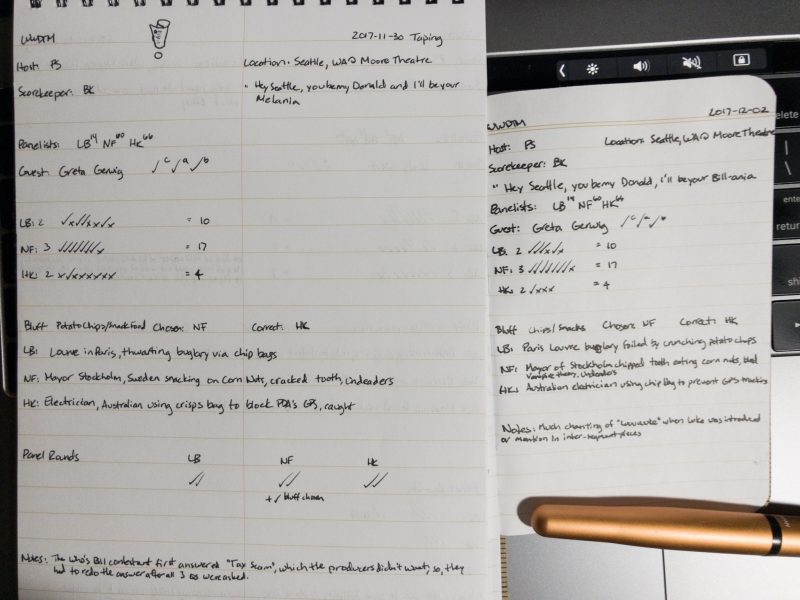 WWDTM 2017-11-30 Taping
Host: PS Location: Seattle, WA @ Moore Theatre
Scorekeeper: BK " Hey Seattle, you be my Donald and I'll be your
Melania
Panelists: LB¹⁴ NF⁶⁰ HK⁶⁶
Guest: Greta Gerwig ✓ᶜ✓ᵃ✓ᵇ
LB: 2 = 10
NF: 3 = 17
HK: 2 = 4
Bluff Potato Chips/Snack Food Chosen: NF Correct: HK
LB: Louvre in Paris, thwarting buglary via chip bags
NF: Mayor Stockholm, Sweden snacking on Corn Nuts, cracked tooth, Undeaders
HK: Electrician, Australian using crisps bag to block PDA's GPS, caught
Panel Rounds LB NF HK
✓✓ ✓✓ ✓✓
+ ✓ bluff chosen
Notes: The Who's Bill contestant first answered "Tax Scam", which the producers didn't want, so, they
had to redo the answer after all 3 Qs were asked.
WWDTM 2017-12-02
Host: PS Location: Seattle, WA @ Moore Theatre
Scorekeeper: BK
" Hey Seattle, you be my Donald, I'll be your Bill-ania
Panelists: LB¹⁴ NF⁶⁰ HK⁶⁶
Guest: Greta Gerwig ✓ᶜ✓ᵃ✓ᵇ
LB: 2 = 10
NF: 3 = 17
HK: 2 ✓xxx = 4
Bluff Chips/Snacks Chosen: NF Correct: HK
LB: Paris Louvre bugglary foiled by crunching potato chips
NF: Mayor of Stockholm chipped tooth eating corn nuts, bled
vampire theory, Undeaders
HK: Australian electrician using chip bag to prevent GPS tracking
Notes: Much chanting of "Luuuuke" when Luke was introduced
or mention in inter-segment pieces
elete
enter
return
shi